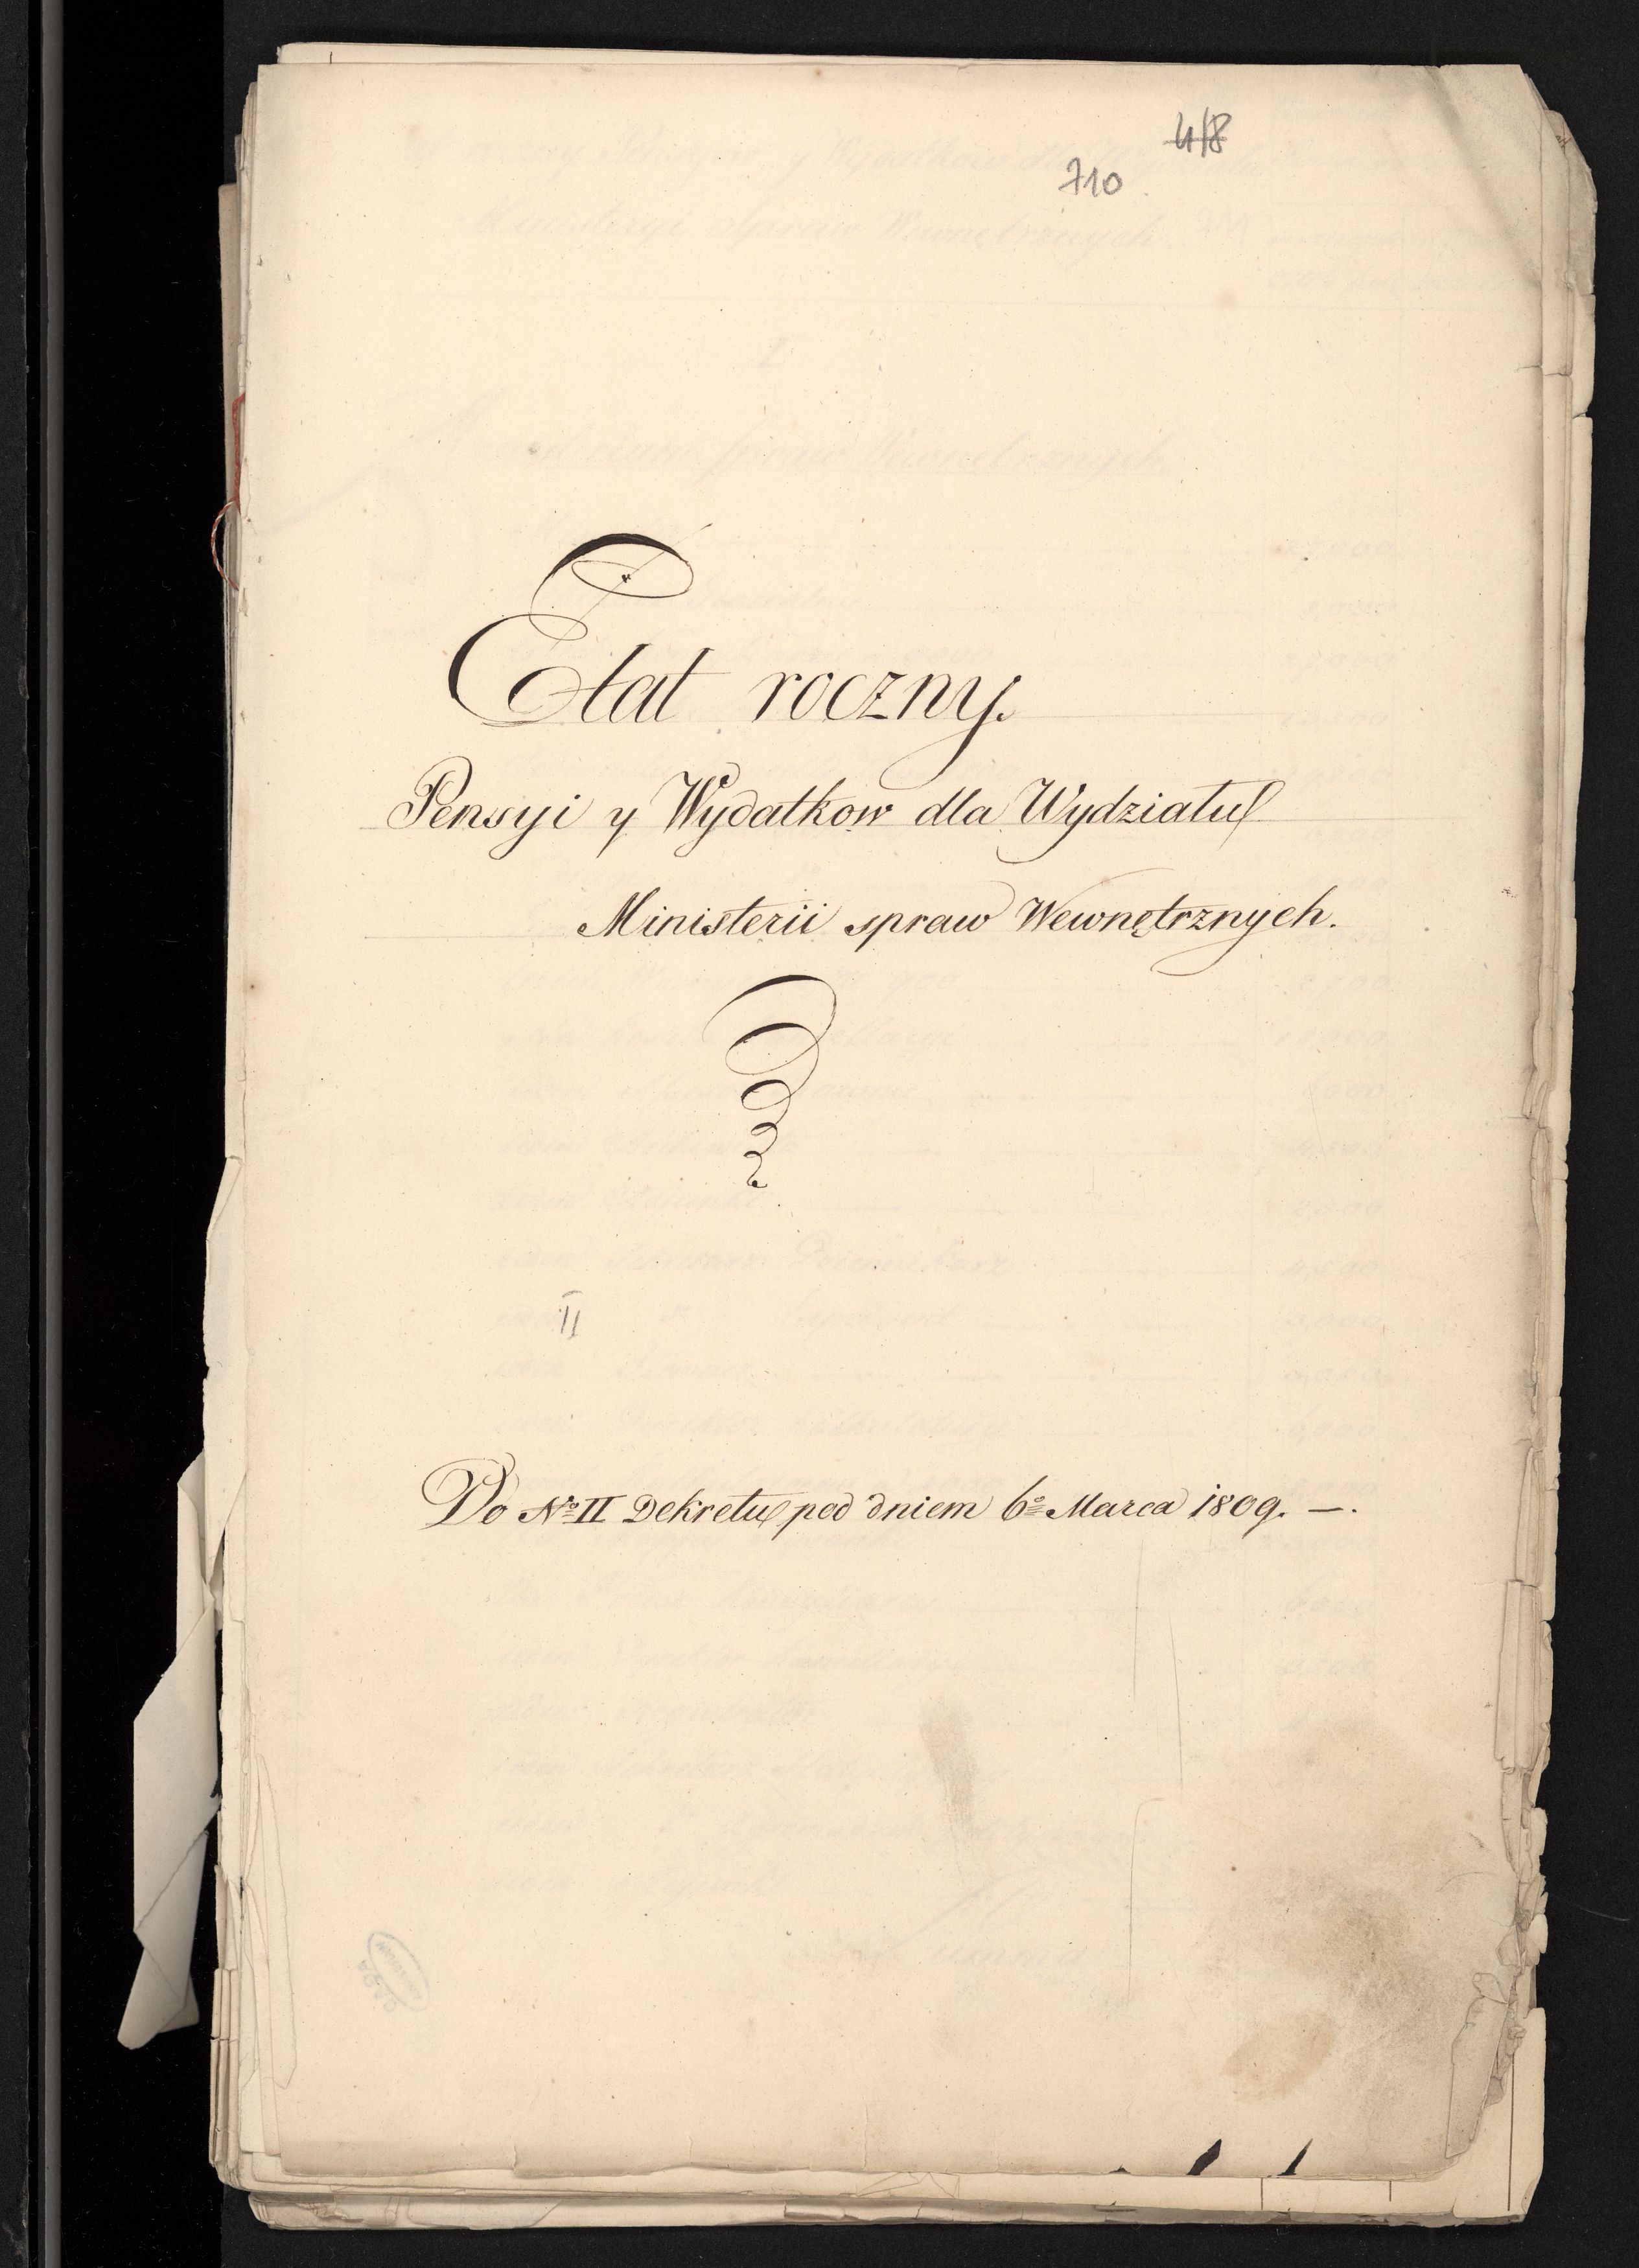 4/8
710
Etat roczny.
Pensyi y Wydatkow dla Wydziału
Ministerii spraw Wewnętrznych.
II
Do No II Dekretu pod dniem 6o Marca 1809. —.